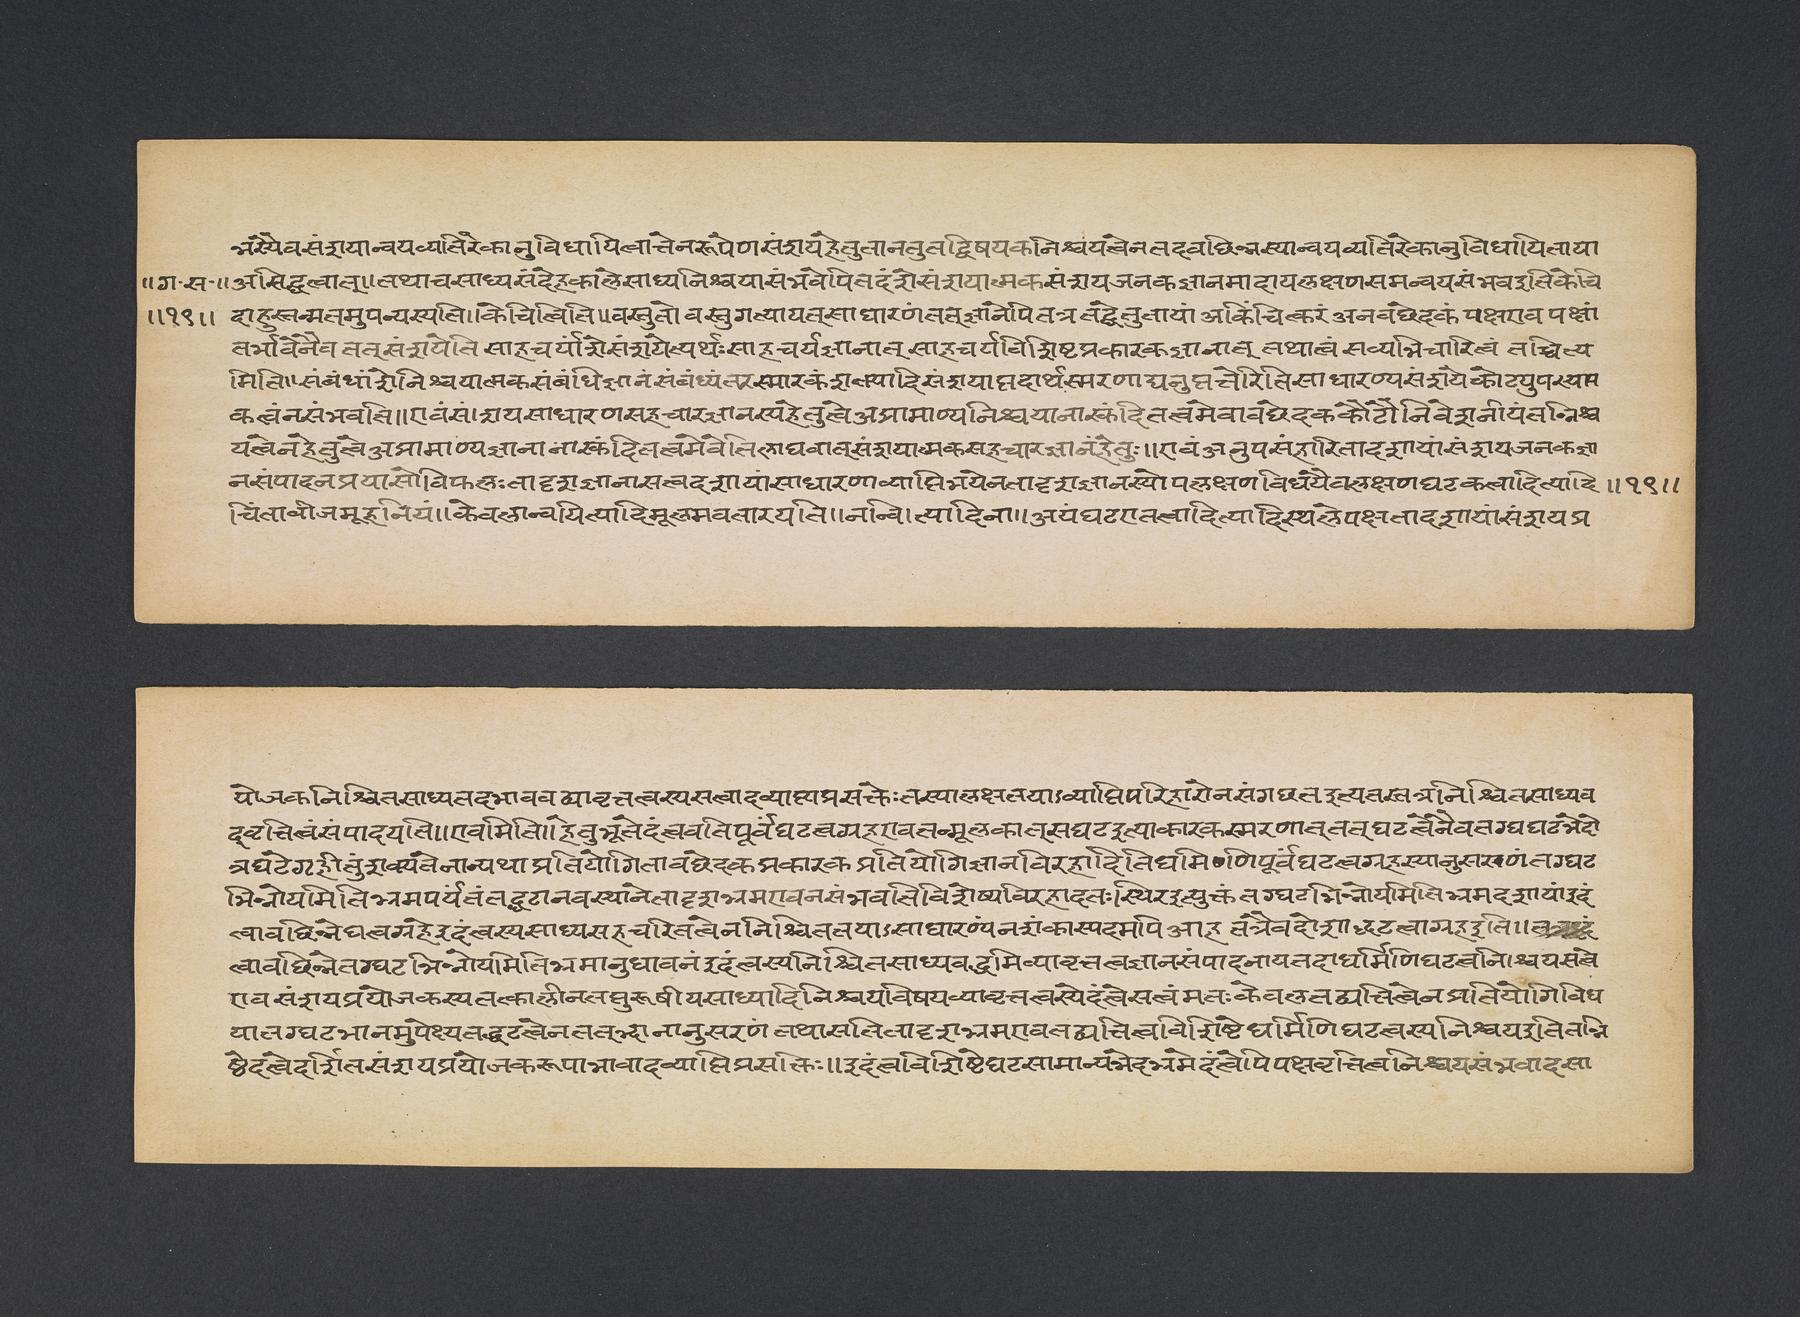 भस्यैव संशयान्वयव्यतिरेकानुविधायित्वात्तेन रूपेण संशयहेतुता न तु तद्विषयकनिश्चयत्वेन तदवछिन्नस्यान्वयव्यतिरेकानुविधायिताया
॥ग॰स॰॥ असिद्धत्वात्॥ तथा च साध्यसंदेहकाले साध्यनिश्चयासंभवेपि तदंशे संशयात्मकसंशयजनकज्ञानमादाय लक्षणसमन्वयसंभव इति केचि
॥१९॥ दाहुस्तन्मतमुपन्यस्यति॥ केचित्विति॥ वस्तुतो वस्तुगत्या यत् साधारणं तत् ज्ञानेपि तत्र तद्धेतुतायां अकिंचित्करं अनवछेदकं पक्ष एव पक्षां
तर्भावेनैव तत् संशयेति साहचर्यांशे संशयेत्यर्थः साहचर्यज्ञानात् साहचर्यविशिष्टप्रकारकज्ञानात् तथात्वं सव्यभिचारित्वं तच्चिंत्य
मिति॥ संबंधांशे निश्चयात्मकसंबंधिज्ञानं संबंध्यंतरस्मारकं
कत्वं न संभवति॥ एवं सं।शयसाधारणसहचारज्ञानस्य हेतुत्वे अप्रामाण्यनिश्चयानास्कंदितत्वमेवावछेदककोटौ निवेशनीयं तन्निश्च
यत्वेन हेतुत्वे अप्रामाण्यज्ञानानास्कंदितत्वमेवेति लाघवात् संशयात्मकसहचारज्ञानं हेतुः॥ एवं अनुपसंहारितादशायां संशयजनकज्ञा
नसंपादनप्रयासो विफलः तादृशज्ञानासत्वदशायां साधारणाव्याप्तिभयेन तादृशज्ञानस्योपलक्षणविधयैव लक्षणघटकत्वादित्यादि ॥१९॥
चिंताबीजमूहनियं॥ केवलान्वयित्यादिमूलमवतारयति॥ नन्वि।त्यादिना॥ अयं घट एतत्वादित्यादिस्थले पक्षतादशायां संशयप्र
योजकनिश्चितसाध्यतदभाववद्व्यावृत्तत्वस्य सत्वादव्याप्त्यप्रसक्तेः तस्यालक्षतया ऽव्याप्तिपरिहारो न संगछत इत्यतस्तत्र निश्चितसाध्यव
द्वृत्तित्वं संपादयति॥ एवमिति॥ हेतुभूतेदंत्ववति पूर्वं घटत्वग्रह एव तन्मूलकात् स घट इत्याकारकस्मरणात् तत् घटत्वेनैव तग्घटभेदो
त्र घटे गृहीतुं शक्यते नान्यथा प्रतियोगितावछेदकप्रकारकप्रतियोगिज्ञानविरहादिति धर्मिणि पूर्वं घटत्वग्रहस्यानुसरणं तग्घट
भिन्नोयमिति भ्रमपर्यंतं तद्घटानवस्थाने तादृशभ्रम एव न संभवति विशेष्यविरहादतः स्थिर इत्युक्तं तग्घटभिन्नोयमिति भ्रमदशायां इदं
त्वावछिन्ने घत्वग्रहे इदंत्वस्य साध्यसहचरितत्वेन निश्चिततया ऽसाधारण्यं न शंकास्पदमपि आह तत्रैव दोशाद्घटत्वाग्रह इति॥
त्वावछिन्ने तग्घटभिन्नोयमिति भ्रमानुधावनं इदंत्वस्य निश्चितसाध्यवद्धर्मिव्यावृत्तत्वज्ञानसंपादनाय तदा धर्मिणि घटत्वनि।श्चयसत्वे
एव संशयप्रयोजकस्य तत्कालीनतत्पुरूषीयसाध्यादिनिश्चयविषयव्यावृत्तत्वस्येदंत्वे सत्वं मतः केवलतद्व्यक्तित्वेन प्रतियोगिविध
या तग्घटभानमुपेक्ष्य तद्घटत्वेन तत् भानानुसरणं तथा सति तादृशभ्रम एव तद्व्यक्तित्वविशिष्टे धर्मिणि घटत्वस्य निश्चय इति तन्नि
ष्ठेदंत्वे दर्शितसंशयप्रयोजकरूपाभावादव्याप्तिप्रसक्तिः॥ इदंत्वविशिष्टे घटसामान्यभेदभ्रमेदंत्वेपि पक्षवृत्तित्वनिश्चयसंभवादसा